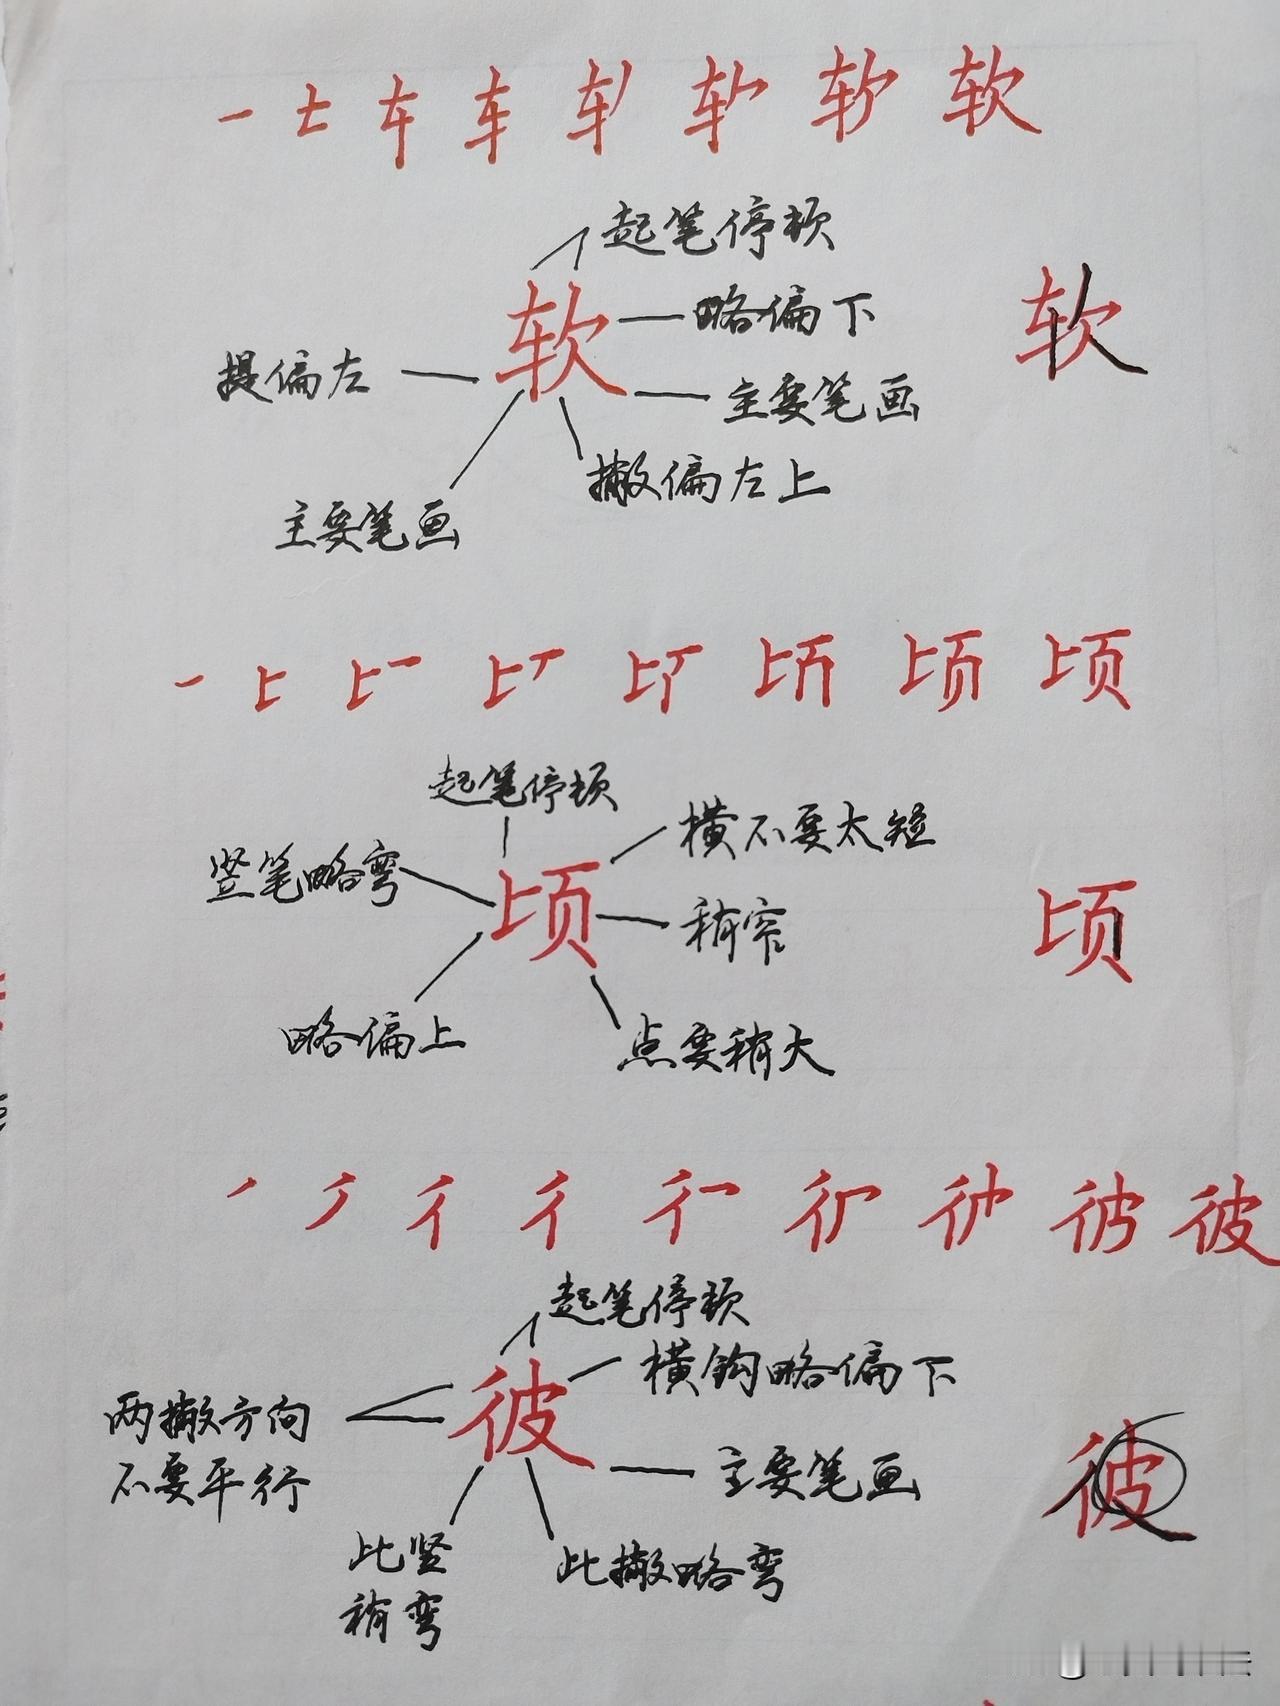 软
起笔停顿
软 略偏下 软
提偏左
主要笔画
撇偏左上
主要笔画
顷
起笔停顿
横不要太短
竖笔略弯
顷 稍窄 顷
略偏上
点要稍大
彼
起笔停顿
横钩略偏下
两撇方向 彼
不要平行 主要笔画 彼
比竖 此撇略弯
稍弯